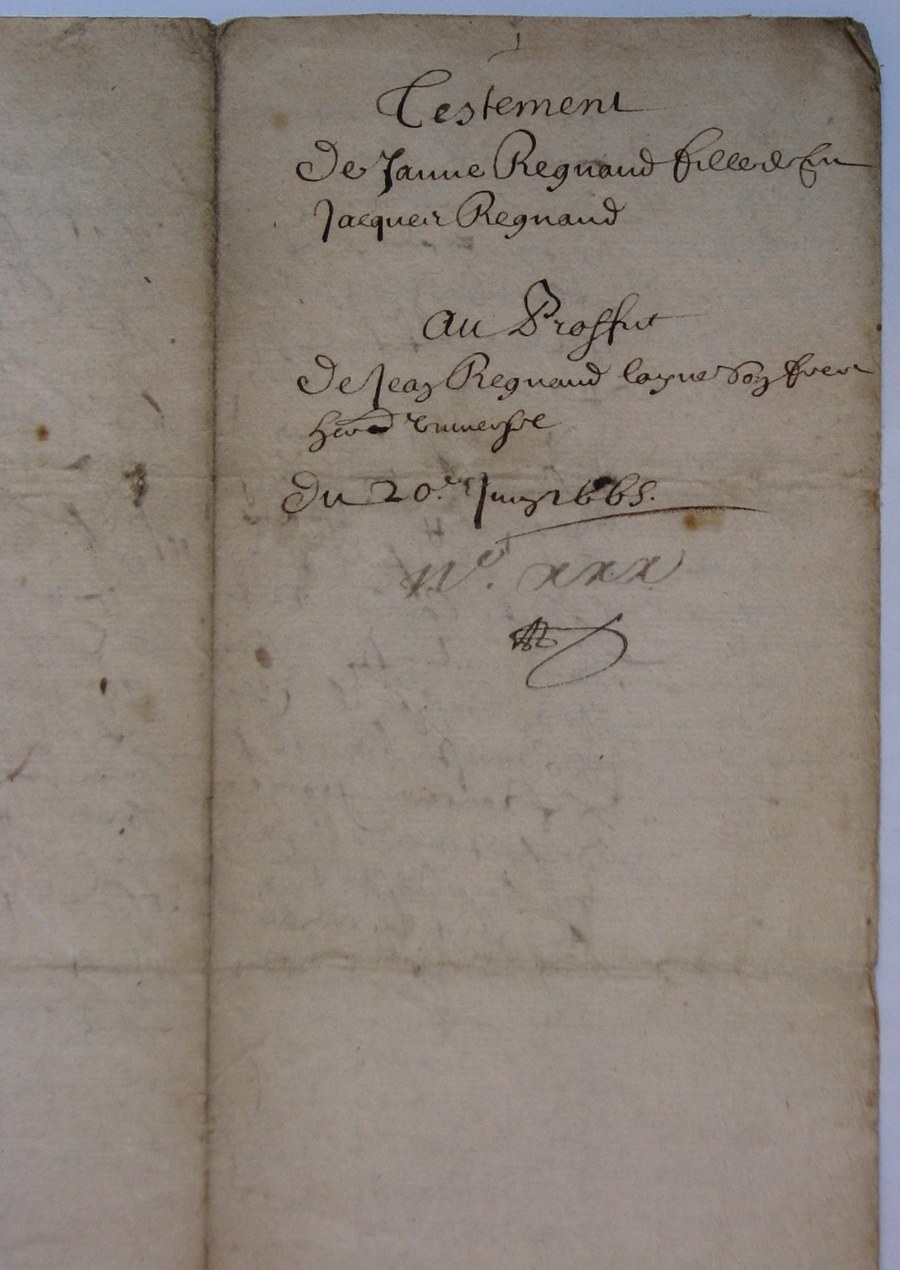 Testement
De Janne Regnaud fille de fu
Jacques Regnaud
Au Proffit
De Jean Regnaud layne son frere
her. universel
Du 20.e Juin 1665.
N.o xxx